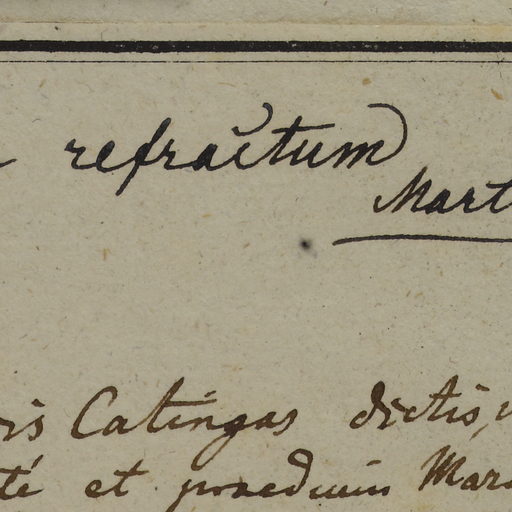 refractum
Mart
is Catingas dictis,
té et praedium Mara